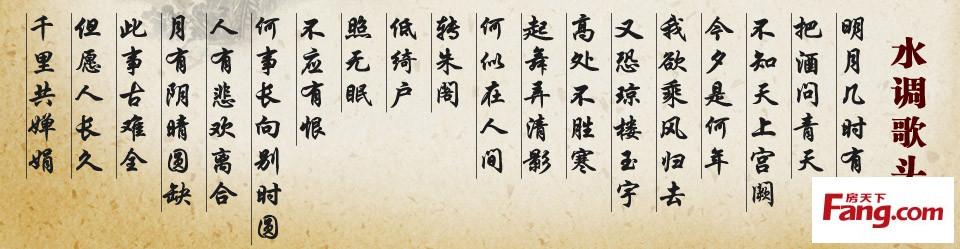 水调歌头
明月几时有
把酒问青天
不知天上宫阙
今夕是何年
我欲乘风归去
又恐琼楼玉宇
高处不胜寒
起舞弄清影
何似在人间
转朱阁
低绮户
照无眠
不应有恨
何事长向别时圆
人有悲欢离合
月有阴晴圆缺
此事古难全
但愿人长久
千里共婵娟
房天下
Fang.com